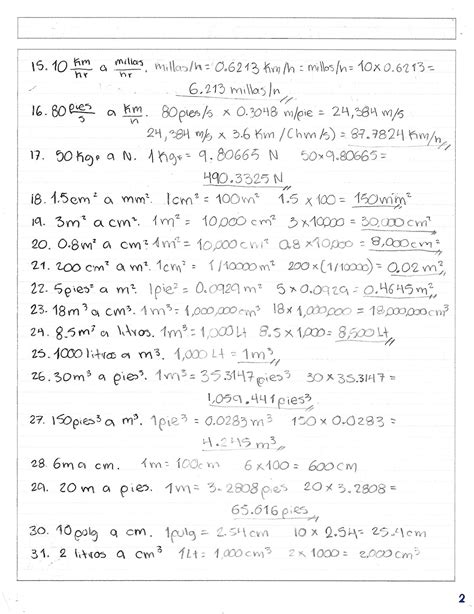 15. 10 km/hr a millas/hr. millas/h = 0.6213 Km/h = millas/h = 10 x 0.6213 =
6.213 millas/h
16. 80 pies/s a km/h. 80pies/s x 0.3048 m/pie = 24,384 m/s
24,384 m/s x 3.6 Km/(hm/s) = 87.7824 Km/h
17. 50 Kg. a N. 1 Kg. = 9.80665 N 50 x 9.80665 =
490.3325 N
18. 1.5cm² a mm². 1cm² = 100m² 1.5 x 100 = 150mm²
19. 3m² a cm². 1m² = 10,000 cm² 3 x 10,000 = 30,000 cm²
20. 0.8m² a cm² 1m² = 10,000 cm² 0.8 x 10,000 = 8,000 cm²
21. 200 cm² a m². 1cm² = 1/10000 m² 200 x (1/10000) = 0.02 m²
22. 5pies² a m². 1pie² = 0.0929 m² 5 x 0.0929 = 0.4645 m²
23. 18m³ a cm³. 1m³ = 1,000,000 cm³ 18 x 1,000,000 = 18,000,000 cm³
24. 8.5m³ a litros. 1m³ = 1,000 Lt 8.5 x 1,000 = 8,500 Lt
25. 1000 litros a m³. 1,000 Lt = 1m³
26. 30m³ a pies³. 1m³ = 35.3147 pies³ 30 x 35.3147 =
1,059.441 pies³
27. 150pies³ a m³. 1pie³ = 0.0283 m³ 150 x 0.0283 =
4.245 m³
28. 6m a cm. 1m = 100cm 6 x 100 = 600 cm
29. 20 m a pies. 1m = 3.2808 pies 20 x 3.2808 =
65.616 pies
30. 10 pulg a cm. 1pulg = 2.54cm 10 x 2.54 = 25.4cm
31. 2 litros a cm³ 1Lt = 1,000 cm³ 2 x 1000 = 2,000 cm³
2